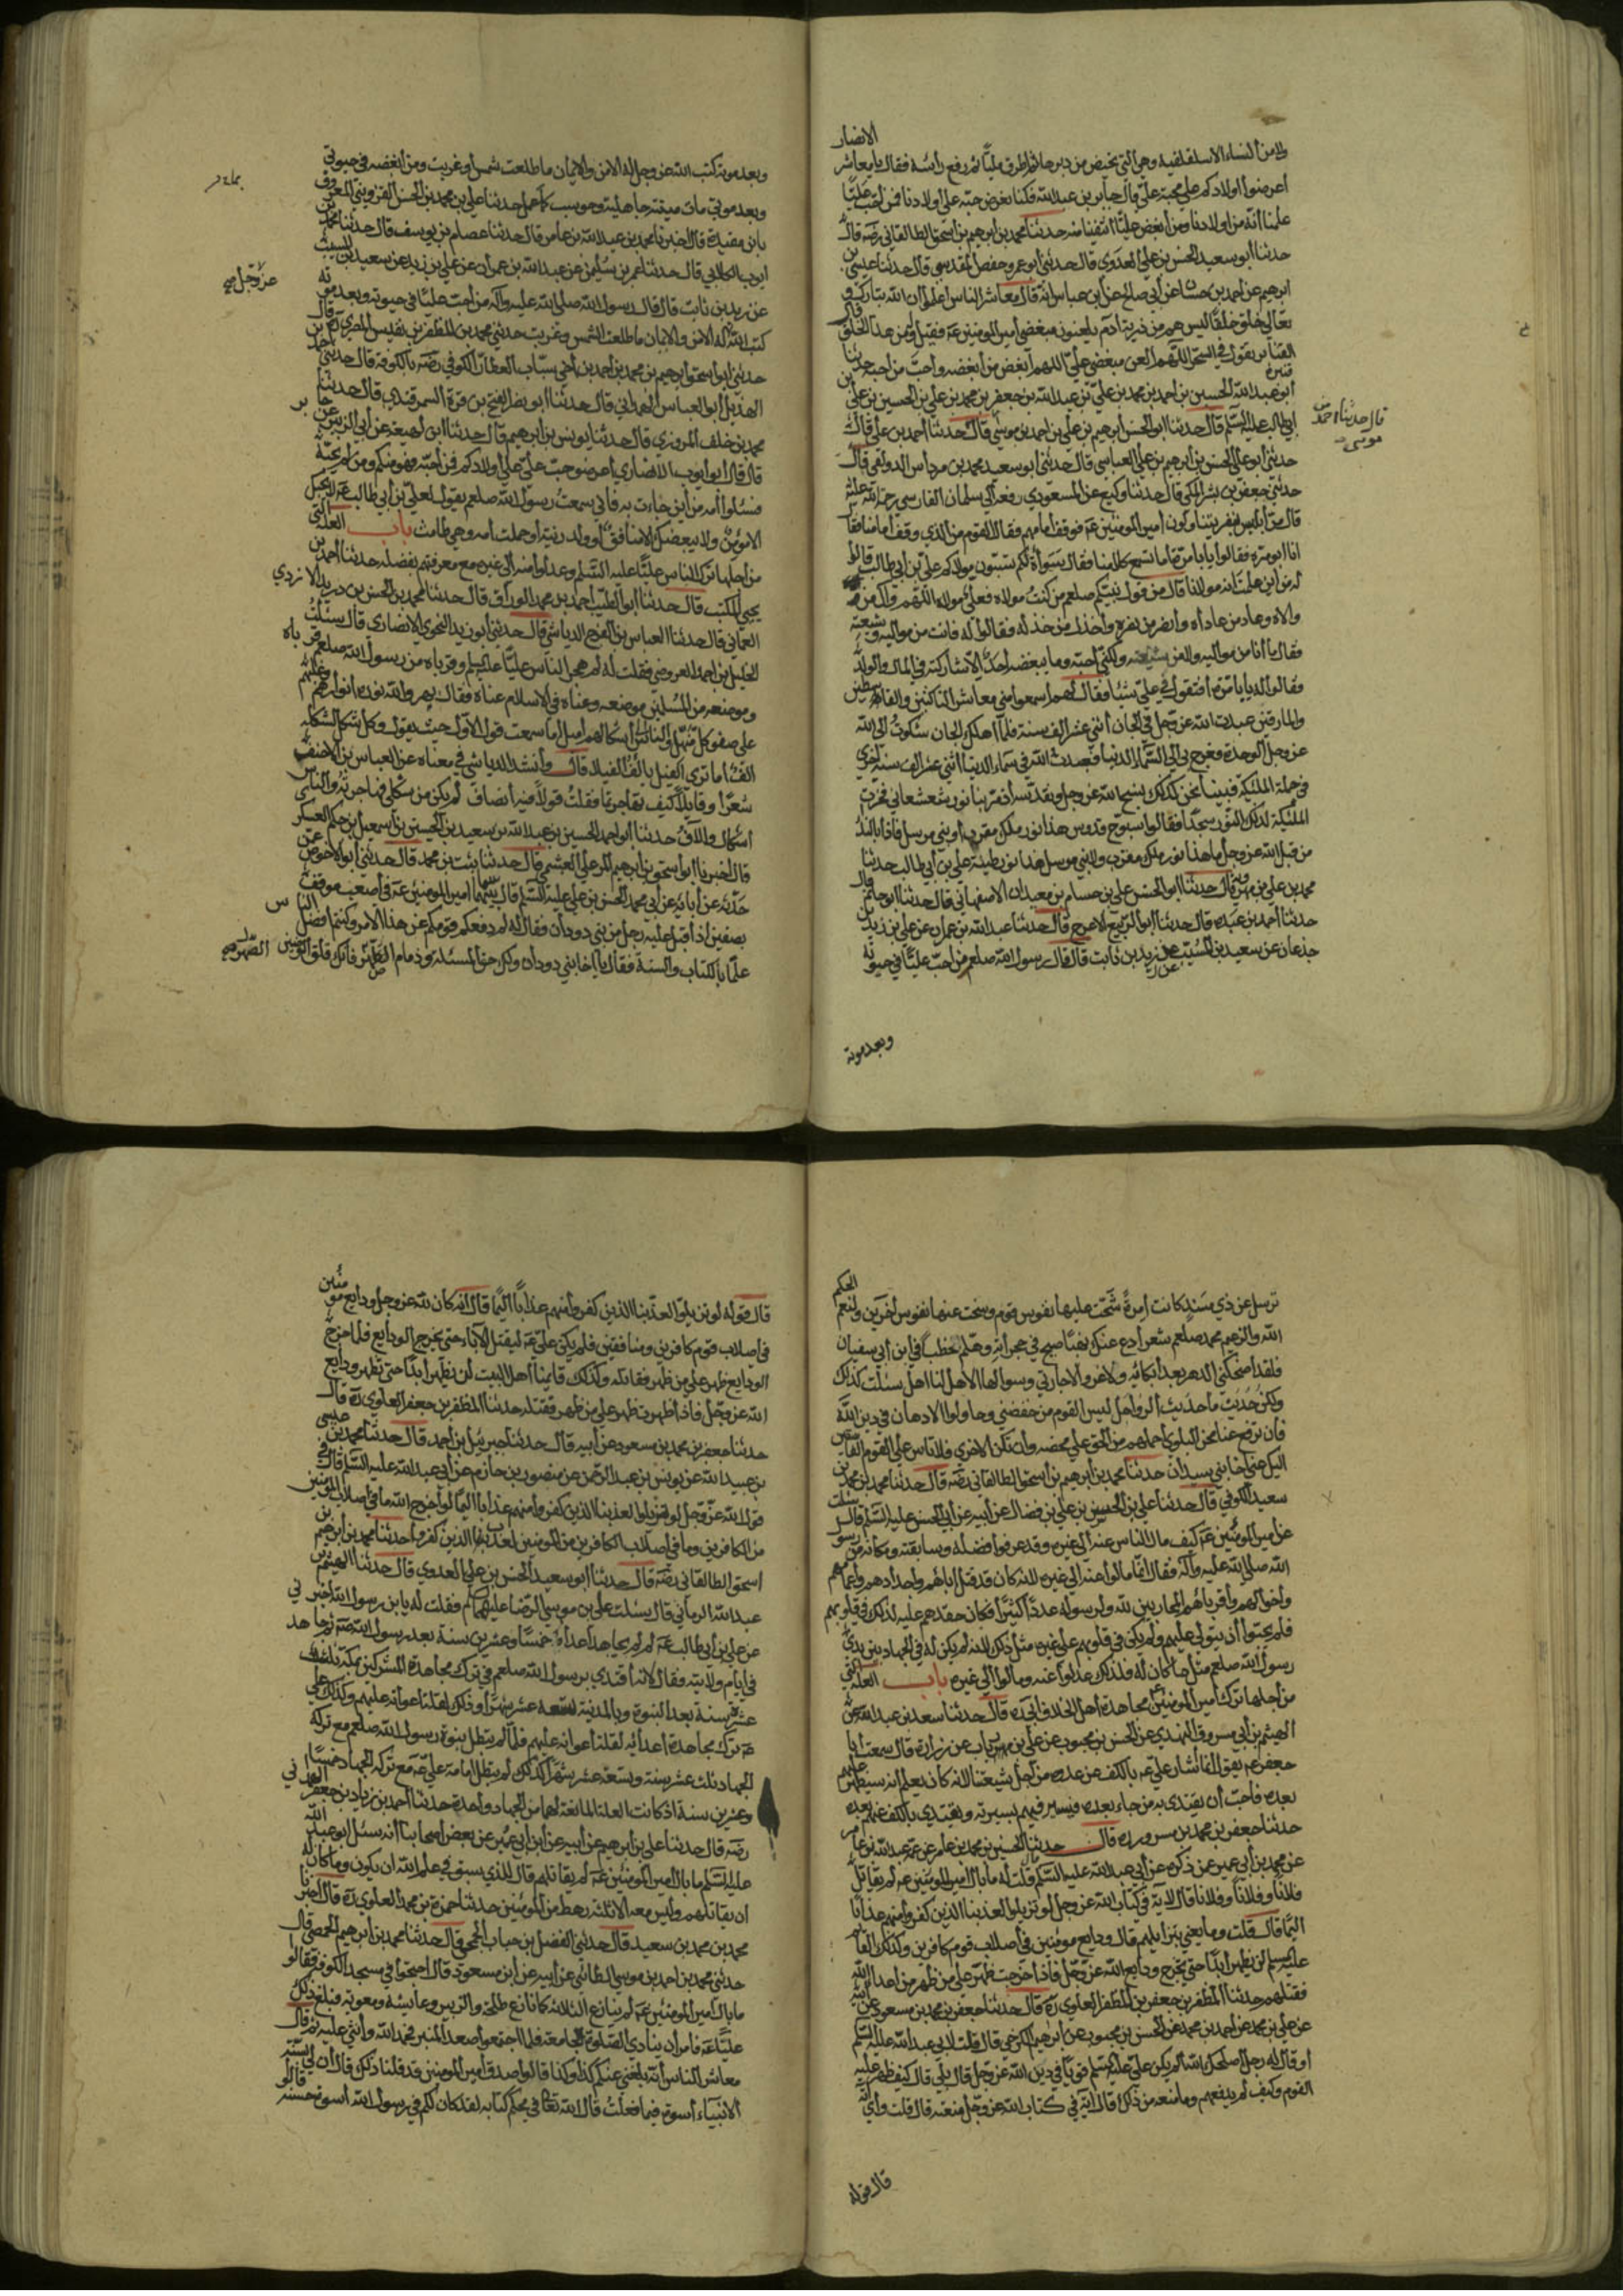 الانصار
ولا من النساء الا سلقلقية وهي التي تحيض من دبرها ثم اطرق مليا ثم رفع رأسه فقال يا معاشر
اعرضوا اولادكم على محبة علي قال جابر بن عبد الله فكنا نعرض حبه على اولادنا فمن احب عليا
علمنا انه من اولادنا ومن ابغض عليا انتفينا منه حدثنا محمد بن ابرهيم بن اسحق الطالقاني رضه قال
حدثنا ابو سعيد الحسن بن علي العدوي قال حدثني ابو عمرو حفص المقدسي قال حدثنا عيسى بن
ابرهيم عن احمد بن حسان عن ابي صالح عن ابن عباس انه قال معاشر الناس اعلموا ان الله تبارك و
تعالى خلق خلقا ليس هم من ذرية ادم يلعنون مبغضي امير المؤمنين عه فقيل له ومن هذا الخلق قال
القنابر يقول في السحر اللهم العن مبغضي علي اللهم ابغض من ابغضه واحب من احبه حدثنا
ابو عبد الله الحسين بن احمد بن محمد بن علي بن عبد الله بن جعفر بن محمد بن علي بن الحسين بن علي بن
ابي طالب عليه السلام قال حدثنا ابو الحسن ابرهيم بن علي بن احمد بن موسى قال حدثنا احمد بن علي قال
قال حدثنا احمد بن موسى
حدثني ابو علي الحسن بن ابرهيم بن علي العباسي قال حدثني ابو سعيد محمد بن مرداس الدولقي قال
حدثني جعفر بن بشر المكي قال حدثنا وكيع عن المسعودي رفعه الى سلمان الفارسي رحمة الله عليه
قال مر ابليس بنفر يتناولون امير المؤمنين عه فوقف امامهم فقال القوم من الذي وقف امامنا فقال
انا ابو مرة فقالوا يابا مرة اما تسمع كلامنا فقال سوأة لكم تسبون مولاكم علي بن ابي طالب قالوا
له من اين علمت انه مولانا قال من قول نبيكم صلعم من كنت مولاه فعلي مولاه اللهم وال من
والاه وعاد من عاداه وانصر من نصره واخذل من خذله فقالوا له فانت من مواليه وشيعته
فقال ما انا من مواليه ولا من شيعته ولكني احبه وما يبغضه احد الا شاركته في المال والولد
فقالوا له يابا مرة افتقول في علي شيئا فقال لهم اسمعوا مني معاشر الناكثين والقاسطين
والمارقين عبدت الله عز وجل في الجان اثني عشر الف سنة فلما اهلك الجان شكوت الى الله
عز وجل الوحدة فعرج بي الى السماء الدنيا فعبدت الله في سماء الدنيا اثني عشر الف سنة اخرى
في جملة الملئكة فبينا نحن كذلك نسبح الله عز وجل ونقدسه اذ مر بنا نور شعشعاني فخرت
الملئكة لذلك النور سجدا فقالوا سبوح قدوس هذا نور ملك مقرب او نبي مرسل فاذا بالنداء
من قبل الله عز وجل ما هذا نور ملك مقرب ولا نبي مرسل هذا نور طينة علي بن ابي طالب حدثنا
محمد بن علي بن مهرويه قال حدثنا ابو الحسن علي بن حسان بن معيدان الاصفهاني قال حدثنا ابو حاتم قال
حدثنا احمد بن عبده قال حدثنا ابو الربيع الاعرج قال حدثنا عبد الله بن عمران عن علي بن زيد بن
جذعان عن سعيد بن المسيب عن زيد بن ثابت قال قال رسول الله صلعم من احب عليا في حيوته
وبعد موته
وبعد موته كتب الله عز وجل له الامن والايمان ما طلعت شمس او غربت ومن ابغضه في حيوتي
وبعد موتي مات ميتة جاهلية وحوسب بما عمل حدثنا علي بن محمد بن الحسن القزويني المعروف
بابن مقبرة قال اخبرنا محمد بن عبد الله بن عامر قال حدثنا عصام بن يوسف قال حدثنا محمد بن
ايوب الكلابي قال حدثنا عمر بن سليمن عن عبد الله بن عمران عن علي بن زيد عن سعيد بن المسيب
عن زيد بن ثابت قال قال رسول الله صلى الله عليه واله من احب عليا في حيوته وبعد موته
عز وجل صح
كتب الله له الامن والايمان ما طلعت الشمس وغربت حدثني محمد بن المظفر بن نفيس المصري قال
حدثني ابو اسحق ابرهيم بن محمد بن احمد بن اخي سباب العطار الكوفي رضه بالكوفة قال حدثني احمد بن
الهذيل ابو العباس الهمداني قال حدثنا ابو نصر الفتح بن قرة السمرقندي قال حدثنا
محمد بن خلف المروزي قال حدثنا يونس بن ابرهيم قال حدثنا ابن لهيعة عن ابي الزبير عن جابر
قال قال ابو ايوب الانصاري اعرضوا حب علي على اولادكم فمن احبه فهو منكم ومن لم يحبه
فسئلوا امه من اين جاءت به فاني سمعت رسول الله صلعم يقول لعلي بن ابي طالب عه لا يحبك
الا مؤمن ولا يبغضك الا منافق او ولد زنية او حملت امه وهي طامث باب العلة التي
من اجلها ترك الناس عليا عليه السلم وعدلوا عنه الى غيره مع معرفتهم بفضله حدثنا احمد بن
يحيى المكتب قال حدثنا ابو الطيب احمد بن محمد الوراق قال حدثنا محمد بن الحسن بن دريد الازدي
العماني قال حدثنا العباس بن الفرج الرياشي قال حدثني ابو زيد النحوي الانصاري قال سئلت
الخليل بن احمد العروضي فقلت له لم هجر الناس عليا عليه السلم وقرباه من رسول الله صلعم قرباه
وموضعه من المسلمين موضعه وعناه في الاسلام عناه فقال بهر والله نوره انوارهم وغلبهم
على صفو كل منهل والناس الى اشكالهم اميل اما سمعت قول الاول حيث يقول وكل شكل لشكله
الف اما ترى الفيل يألف الفيلا قال وانشد الرياشي في معناه عن العباس بن الاحنف
شعرا وقايل كيف تهاجرتما فقلت قولا فيه انصاف لم يكن من شكلي فهاجرته والناس
اشكال والاف حدثنا ابو احمد الحسين بن عبد الله بن سعيد بن الحسين بن اسمعيل بن حكيم العسكر
قال اخبرنا ابو اسحق ابرهيم بن رعل العبشمي قال حدثنا ثبت بن محمد قال حدثني ابو الاحوص عن
حدثه عن ابائه عن ابي محمد الحسن بن علي عليه السلم قال بينما امير المؤمنين عه في اصعب موقف
بصفين اذ اقبل عليه رجل من بني دودان فقال له لم دفعكم قومكم عن هذا الامر وكنتم افضل الناس
علما بالكتاب والسنة فقال يا اخا بني دودان ولك حق المسئلة وذمام الصهر فانك قلق الوضين
الصهر صح
الحكم
ترسل عن ذي سند كانت امرة شحت عليها نفوس قوم وسخت عنها نفوس اخرين ولنعم
الله والزعيم محمد صلعم شعر ادع عنك نهبا صيح في حجراته وهلم الخطب في ابن ابي سفيان
فلقد اضحكني الدهر بعد ابكائه ولا غرو الا جارتي وسوالها الا هل لنا اهل سئلت كذلك
ولكن حديث ما حديث الرواحل لبيس القوم من خفضني وحاولوا الادهان في دين الله
فان ترفع عنا محن البلوى احملهم من الحق على محضه وان تكن الاخرى فلا تاس على القوم الفاسقين
اليك عني اخا بني سيدان حدثنا محمد بن ابرهيم بن اسحق الطالقاني رضه قال حدثنا محمد بن محمد بن
سعيد الكوفي قال حدثنا علي بن الحسن بن علي بن فضال عن ابيه عن ابي الحسن عليه السلم قال سئلت
عن امير المؤمنين عه كيف مال الناس عنه الى غيره وقد عرفوا فضله وسابقته ومكانه من رسول
الله صلى الله عليه واله فقال انما مالوا عنه الى غيره لانه كان قد قتل اباءهم واجدادهم واعمامهم
واخوالهم واقرباءهم المحاربين لله ولرسوله عددا كثيرا فكان حقدهم عليه لذلك في قلوبهم
فلم يحبوا ان يتولى عليهم ولم يكن في قلوبهم على غيره مثل ذلك لانه لم يكن له في الجهاد بين يدي
رسول الله صلعم مثل ما كان له فلذلك عدلوا عنه ومالوا الى غيره باب العلة التي
من اجلها ترك امير المؤمنين مجاهدة اهل الخلاف ابي ره قال حدثنا سعد بن عبد الله عن
الهيثم بن ابي مسروق النهدي عن الحسن بن محبوب عن علي بن رياب عن زرارة قال سمعت ابا
جعفر عه يقول انما اشار علي عه بالكف عن عدوه من اجل شيعتنا لانه كان يعلم انه سيظهر عليهم
بعده فاحب ان يقتدي به من جاء بعده ويسير فيهم بسيرته ويقتدي بالكف عنهم بعده
حدثنا جعفر بن محمد بن مسرور ره قال حدثنا الحسين بن محمد بن عامر عن عمه عبد الله بن عامر
عن محمد بن ابي عمير عمن ذكره عن ابي عبد الله عليه السلم قلت له ما بال امير المؤمنين عه لم يقاتل
فلانا وفلانا وفلانا قال لاية في كتاب الله عز وجل لو تزيلوا لعذبنا الذين كفروا منهم عذابا
اليما قال قلت وما يعني بتزايلهم قال ودايع مؤمنين في اصلاب قوم كافرين وكذلك القائم
عليه السلم لن يظهر ابدا حتى تخرج ودايع الله عز وجل فاذا خرجت ظهر على من ظهر من اعداء الله
فقتلهم حدثنا المظفر بن جعفر بن المظفر العلوي ره قال حدثنا جعفر بن محمد بن مسعود عن ابيه
عن علي بن محمد عن احمد بن محمد عن الحسن بن محبوب عن ابرهيم الكرخي قال قلت لابي عبد الله عليه السلم
او قال له رجل اصلحك الله الم يكن علي عليه السلم قويا في دين الله عز وجل قال بلى قال كيف ظهر عليه
القوم وكيف لم يدفعهم وما منعه من ذلك قال اية في كتاب الله عز وجل منعته قال قلت واي اية
قال قوله
قال قوله لو تزيلوا لعذبنا الذين كفروا منهم عذابا اليما قال انه كان لله عز وجل ودايع مؤمنين
في اصلاب قوم كافرين ومنافقين فلم يكن علي عه ليقتل الاباء حتى تخرج الودايع فلما خرج
الودايع ظهر على من ظهر فقاتله وكذلك قايمنا اهل البيت لن يظهر ابدا حتى تظهر ودايع
الله عز وجل فاذا ظهرت ظهر على من ظهر فقتله حدثنا المظفر بن جعفر العلوي ره قال
حدثنا جعفر بن محمد بن مسعود عن ابيه قال حدثنا جبرئيل بن احمد قال حدثنا محمد بن عيسى
بن عبيد الله عن يونس بن عبد الرحمن عن منصور بن حازم عن ابي عبد الله عليه السلم قال في
قول الله عز وجل لو تزيلوا لعذبنا الذين كفروا منهم عذابا اليما لو اخرج الله ما في اصلاب المؤمنين
من الكافرين وما في اصلاب الكافرين من المؤمنين لعذب الذين كفروا حدثنا محمد بن ابرهيم بن
اسحق الطالقاني رضه قال حدثنا ابو سعيد الحسن بن علي العدوي قال حدثنا الهيثم بن
عبد الله الرماني قال سئلت علي بن موسى الرضا عليهما السلم فقلت له يا بن رسول الله اخبرني
عن علي بن ابي طالب عه لم لم يجاهد اعداءه خمسا وعشرين سنة بعد رسول الله صعه ثم جاهد
في ايام ولايته فقال لانه اقتدى برسول الله صلعم في ترك مجاهدة المشركين بمكة ثلث
عشرة سنة بعد النبوة وبالمدينة تسعة عشر شهرا وذلك لقلة اعوانه عليهم وكذلك علي
عه ترك مجاهدة اعدائه لقلة اعوانه عليهم فلما لم تبطل نبوة رسول الله صلعم مع تركه
الجهاد ثلث عشر سنة وتسعة عشر شهرا كذلك لم تبطل امامة علي عه مع تركه الجهاد خمسا
وعشرين سنة اذ كانت العلة المانعة لهما من الجهاد واحدة حدثنا احمد بن زياد بن جعفر الهمداني
رضه قال حدثنا علي بن ابرهيم عن ابيه عن ابن ابي عمير عن بعض اصحابنا انه سئل ابو عبد الله
عليه السلم ما بال امير المؤمنين عه لم يقاتلهم قال للذي سبق في علم الله ان يكون وما كان له
ان يقاتلهم وليس معه الا ثلثة رهط من المؤمنين حدثنا حمزة بن محمد العلوي ره قال اخبرنا
محمد بن محمد بن سعيد قال حدثني الفضل بن حباب الجمحي قال حدثنا محمد بن ابرهيم الحمصي قال
حدثني محمد بن احمد بن موسى الطائي عن ابيه عن ابن مسعود قال احتجوا في مسجد الكوفة فقالوا
ما بال امير المؤمنين عه لم ينازع الثلاثة كما نازع طلحة والزبير وعايشة ومعوية فبلغ ذلك
عليا عه فامر ان ينادي الصلوة الجامعة فلما اجتمعوا صعد المنبر فحمد الله واثنى عليه ثم قال
معاشر الناس انه بلغني عنكم كذا وكذا قالوا صدق امير المؤمنين قد قلنا ذلك قال ان لي بسنة
الانبياء اسوة فيما فعلت قال الله تعالى في محكم كتابه لقد كان لكم في رسول الله اسوة حسنة قالوا